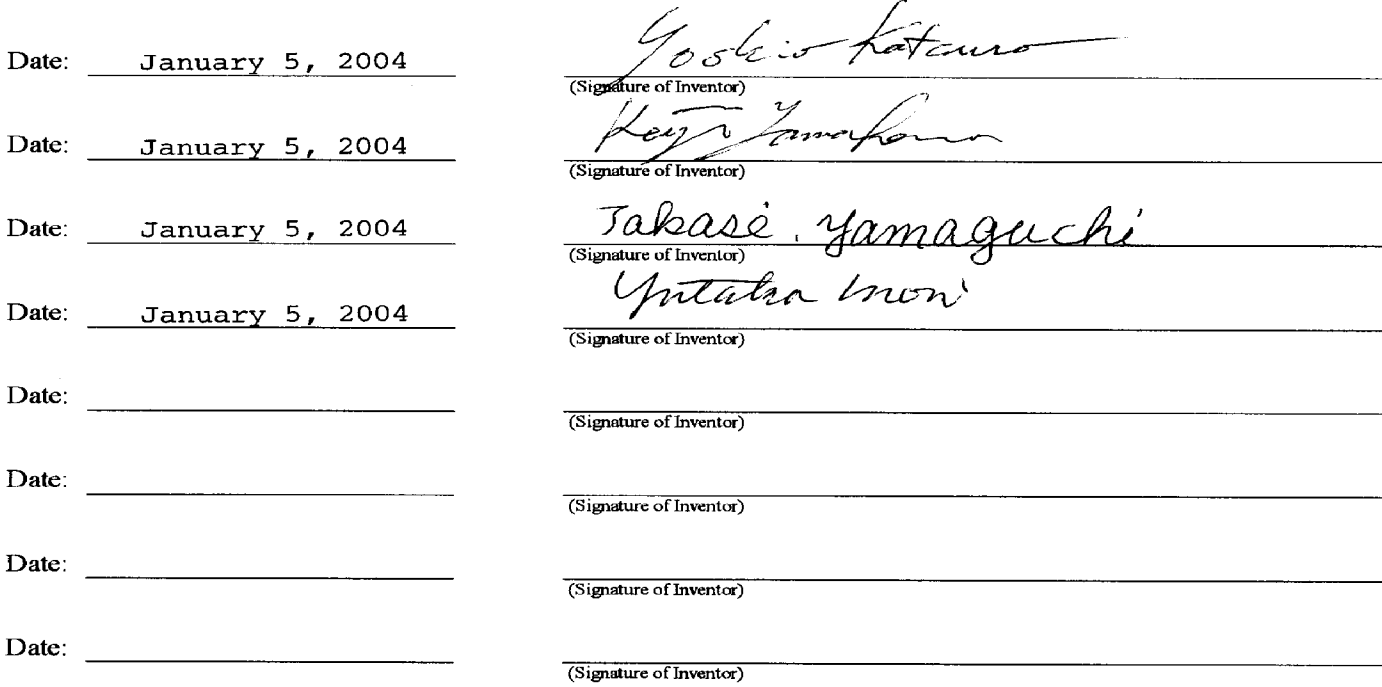 Date: January 5, 2004 Yoshio
(Signature of Inventor)
Date: January 5, 2004
(Signature of Inventor)
Date: January 5, 2004 Takase. Yamaguchi
(Signature of Inventor)
Date: January 5, 2004 Yutaka
(Signature of Inventor)
Date:
(Signature of Inventor)
Date:
(Signature of Inventor)
Date:
(Signature of Inventor)
Date:
(Signature of Inventor)